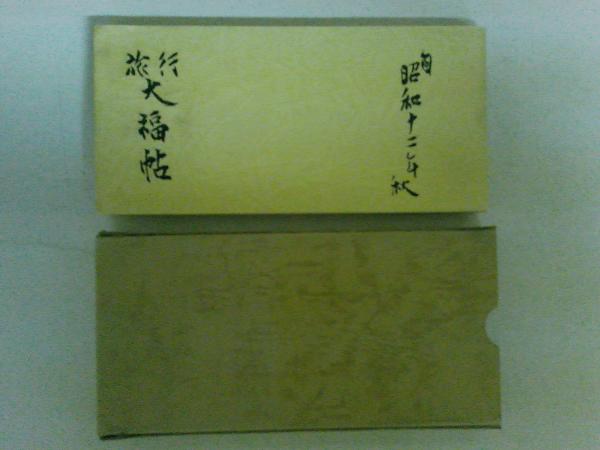 自昭和十二年秋
旅行
大福帖